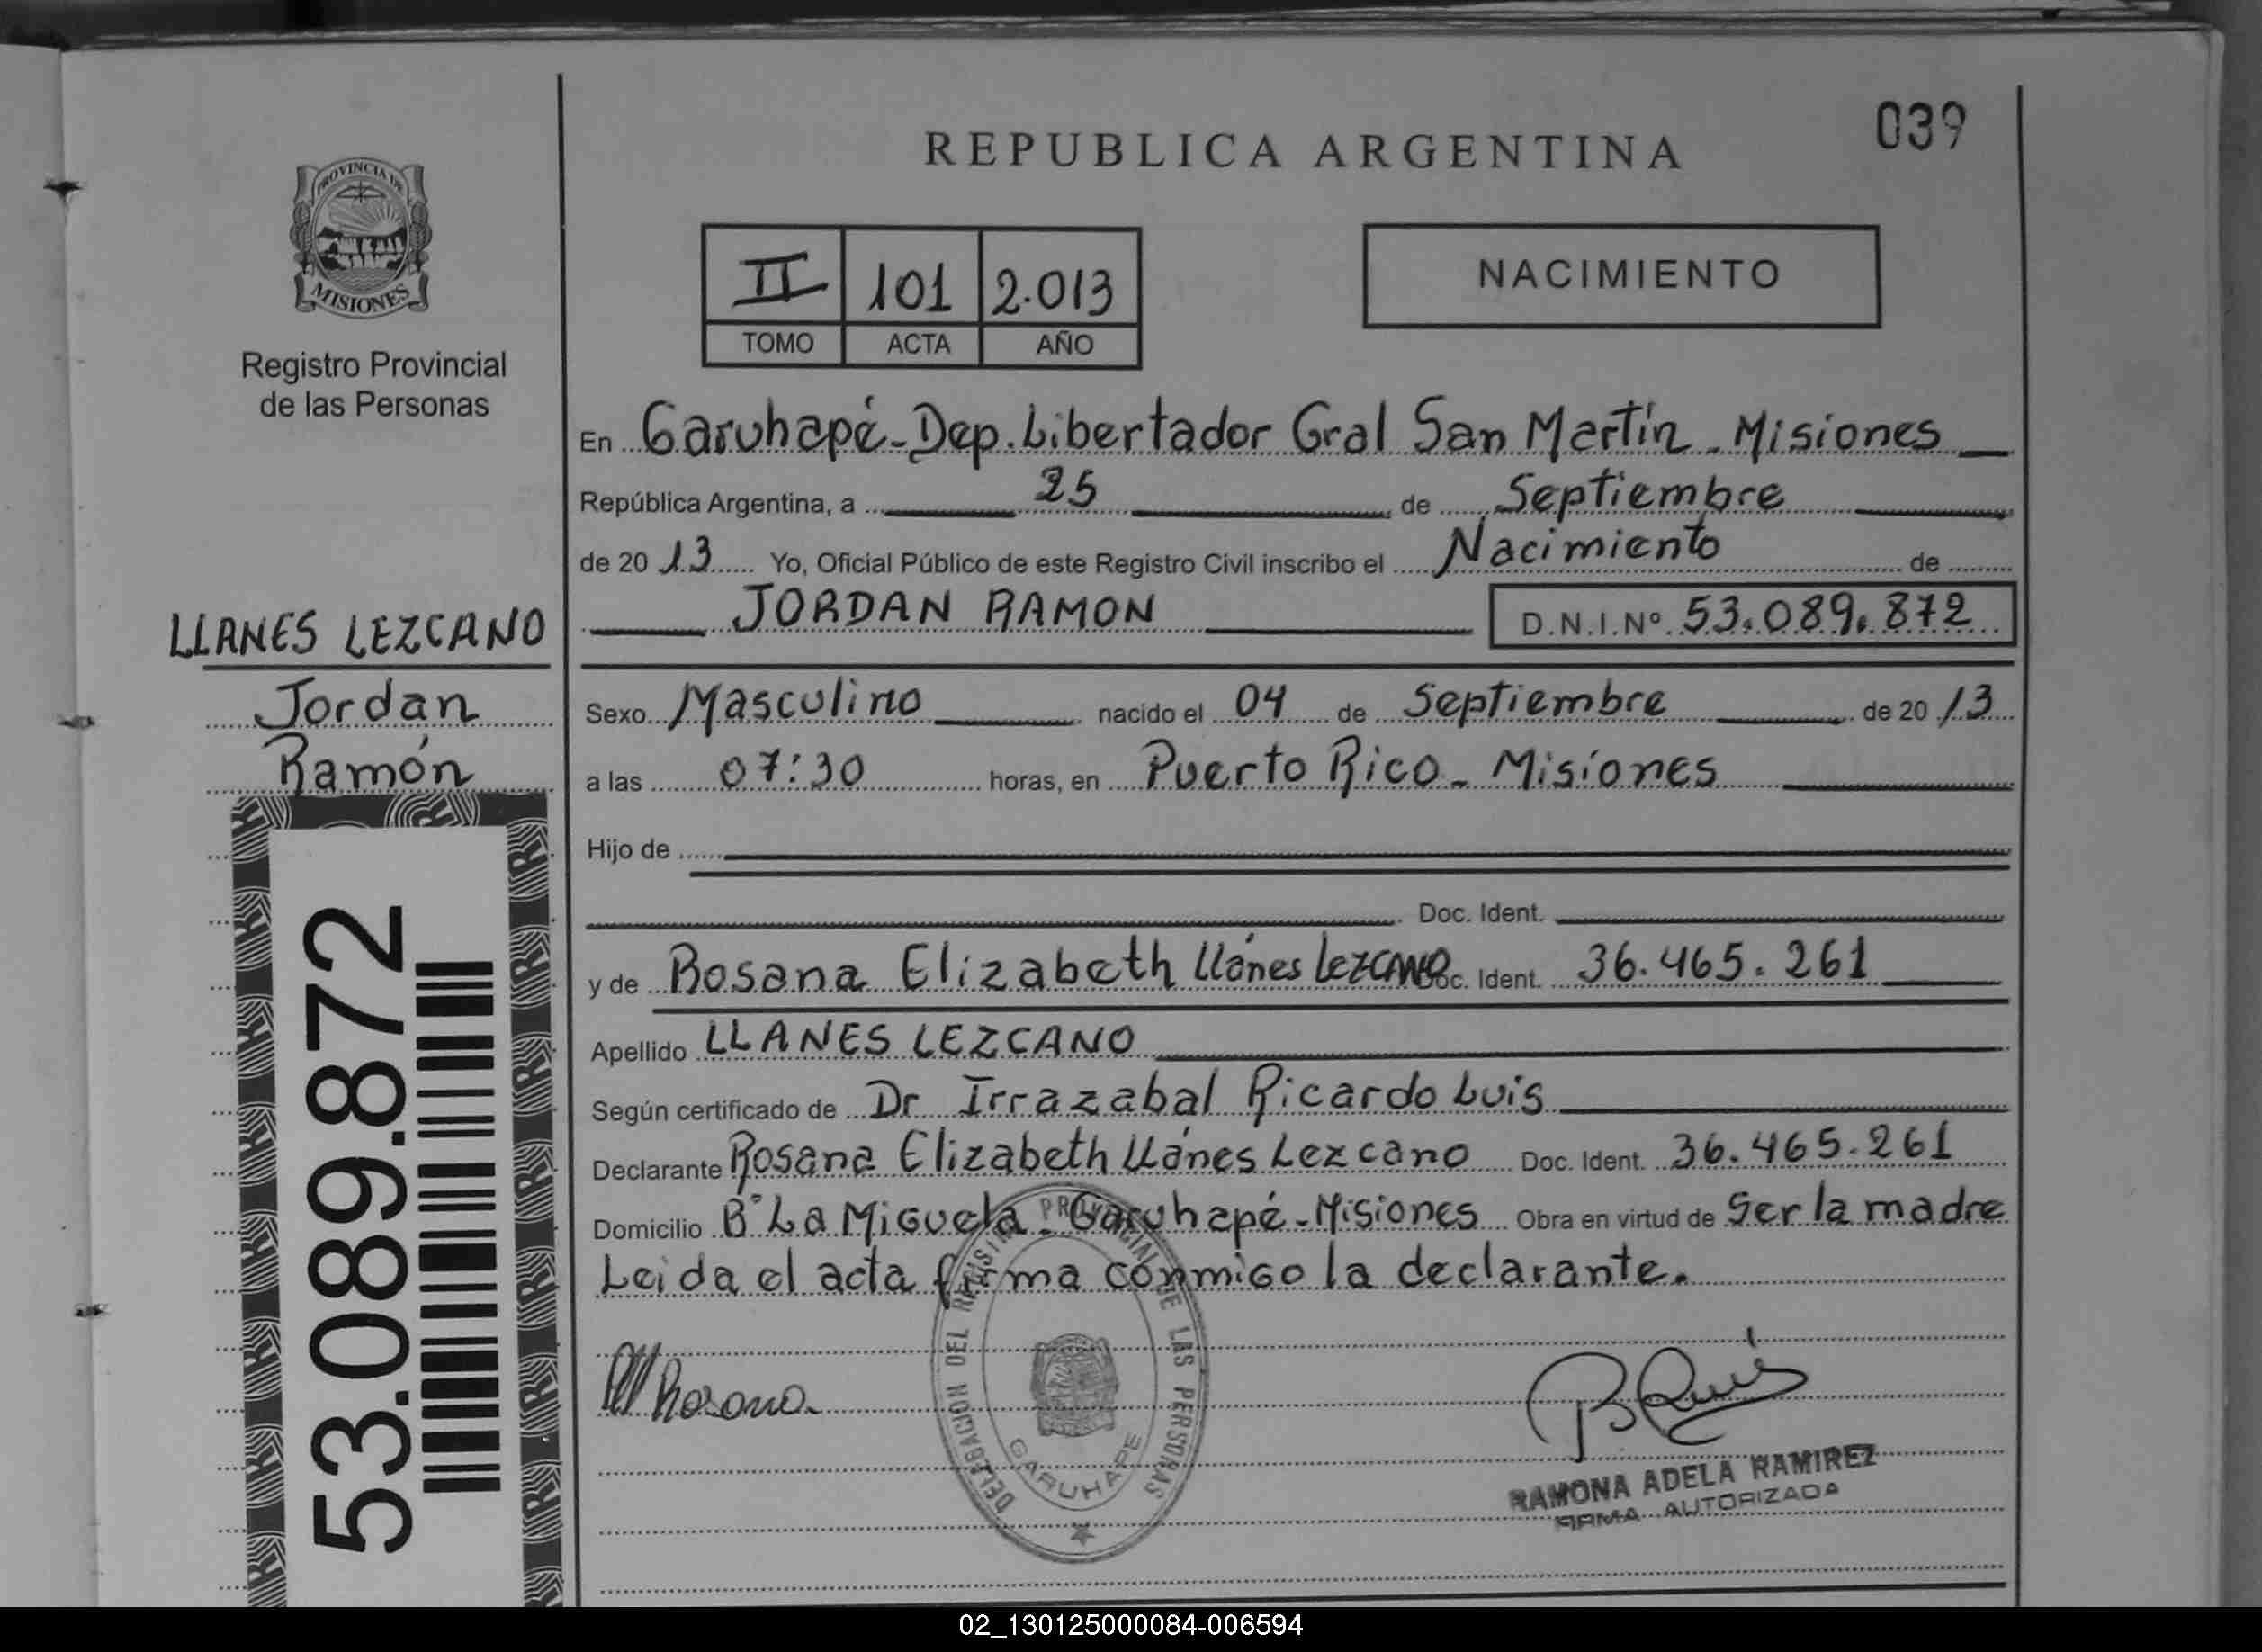 039
REPUBLICA ARGENTINA
PROVINCIA DE
MISIONES
Registro Provincial
de las Personas
II 101 2.013
TOMO ACTA AÑO
NACIMIENTO
En Garuhapé-Dep.Libertador Gral San Martín - Misiones
República Argentina, a 25 de Septiembre
de 20 13 Yo, Oficial Público de este Registro Civil inscribo el Nacimiento de
JORDAN RAMON D.N.I.Nº 53.089.872
LLANES LEZCANO
Jordan
Ramón
53.089.872
Sexo Masculino nacido el 04 de Septiembre de 20 13
a las 07:30 horas, en Puerto Rico - Misiones
Hijo de
Doc. Ident.
y de Rosana Elizabeth Llánes Lezcano Doc. Ident. 36.465.261
Apellido LLANES LEZCANO
Según certificado de Dr Irrazabal Ricardo Luis
Declarante Rosana Elizabeth Llánes Lezcano Doc. Ident. 36.465.261
Domicilio Bº La Miguela - Garuhapé - Misiones Obra en virtud de Ser la madre
Leida el acta firma conmigo la declarante.
Rosana
DELEGACION DEL REGISTRO PROVINCIAL DE LAS PERSONAS
GARUHAPE
RAMONA ADELA RAMIREZ
FIRMA AUTORIZADA
02_130125000084-006594